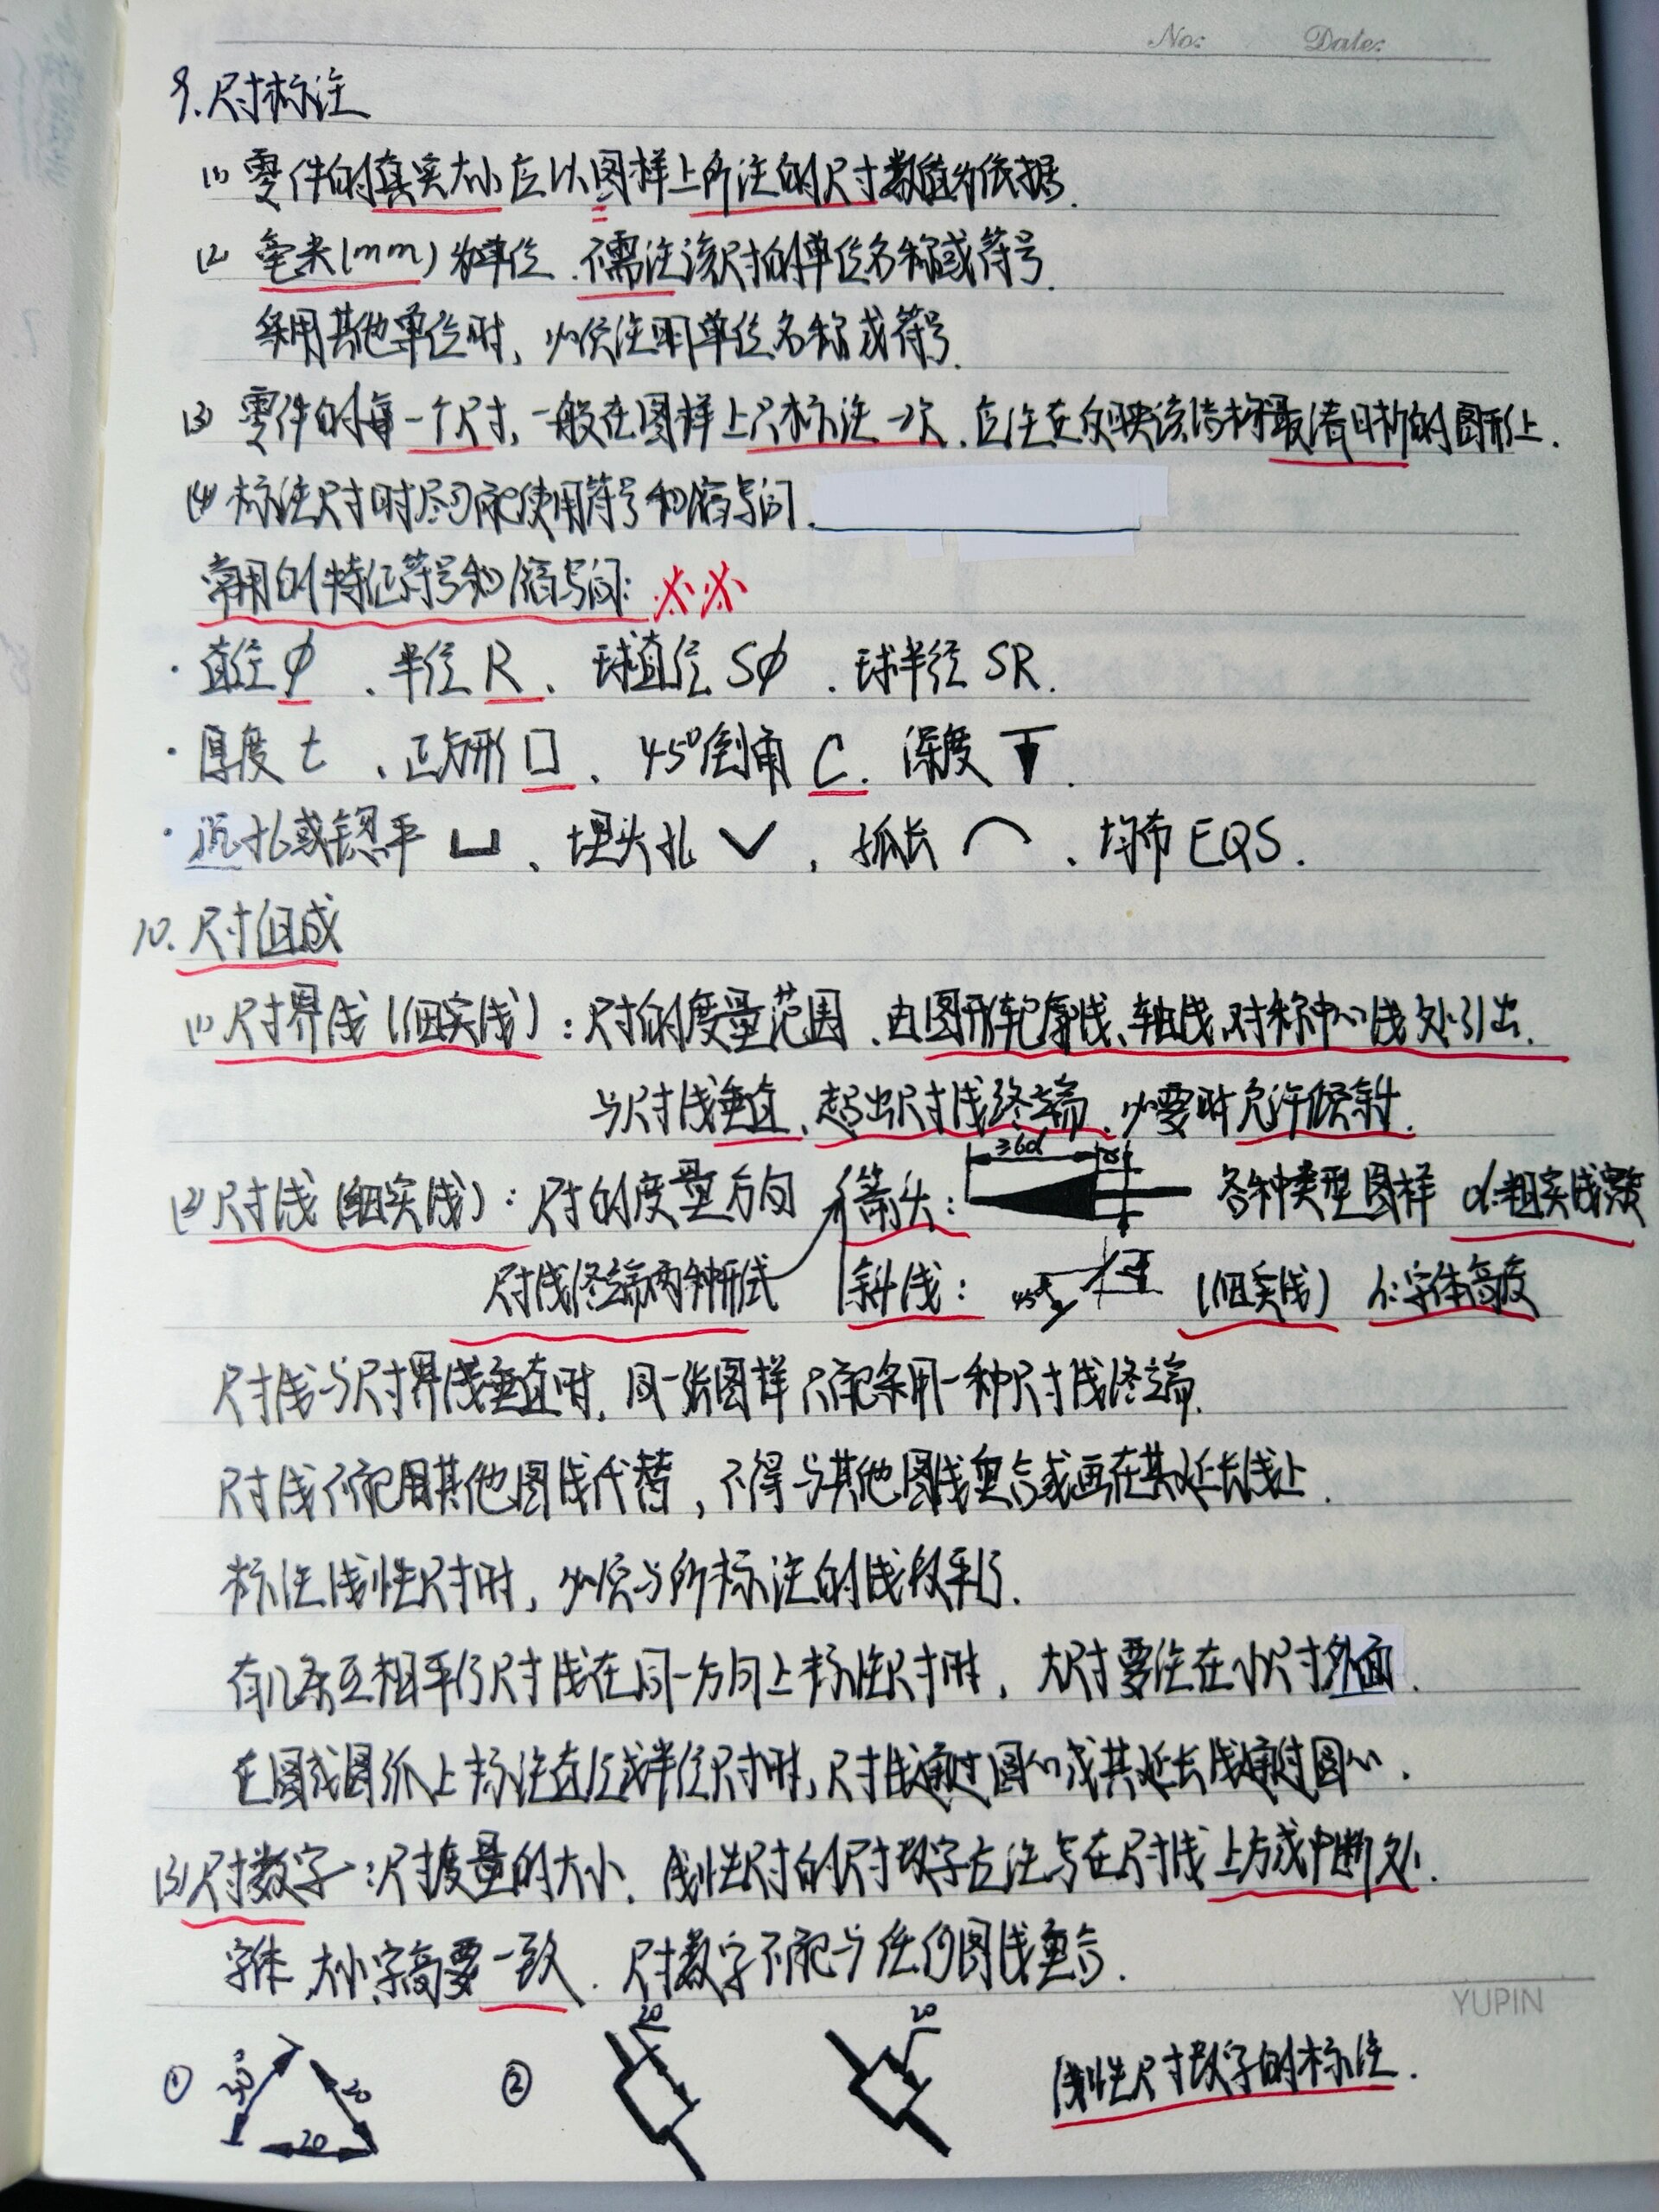 No: Date:
9. 尺寸标注
(1) 零件的真实大小应以图样上所注的尺寸数值为依据.
(2) 毫米(mm)为单位、不需注该尺寸的单位名称或符号.
采用其他单位时, 必须注明单位名称或符号.
(3) 零件的每一个尺寸, 一般在图样上只标注一次. 应注在反映该结构最清晰的图形上.
(4) 标注尺寸时尽可能使用符号和缩写词.
常用的特征符号和缩写词: ※※
· 直径 φ、半径 R、球直径 Sφ、球半径 SR.
· 厚度 t、正方形 □、45°倒角 C. 深度 ↧.
· 沉孔或锪平 ⌴、埋头孔 ⌵, 弧长 ⌒、均布 EQS.
10. 尺寸组成
(1) 尺寸界线(细实线): 尺寸的度量范围、由图形轮廓线、轴线、对称中心线处引出.
与尺寸线垂直、超出尺寸线终端、必要时允许倾斜.
≥6d d
(2) 尺寸线(细实线): 尺寸的度量方向 箭头: 各种类型图样 d:粗实线宽度
尺寸线终端两种形式 斜线: 45° (细实线) h:字体高度
尺寸线与尺寸界线垂直时, 同一张图样只能采用一种尺寸线终端.
尺寸线不能用其他图线代替, 不得与其他图线重合或画在其延长线上.
标注线性尺寸时, 必须与所标注的线段平行.
有几条互相平行尺寸线在同一方向上标注尺寸时, 大尺寸要注在小尺寸外面.
在圆或圆弧上标注直径或半径尺寸时, 尺寸线通过圆心或其延长线通过圆心.
(3) 尺寸数字: 尺寸度量的大小、线性尺寸的尺寸数字应注写在尺寸线上方或中断处.
字体、大小、字高要一致. 尺寸数字不能与任何图线重合.
YUPIN
① 20 20 20 ② 20 20 线性尺寸数字的标注.